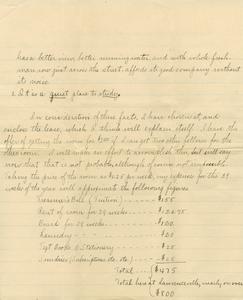 has a better view, better running water, and with whole fresh-
man row just across the street, affords its good company without
its noise.
2. It is a quiet place to study.
In consideration of these facts, I have chosen it, and
enclose the lease, which I think will explain itself. I have the
offer of getting the room for if I can get two other fellows for the
other room. I will make an effort to accomplish this, but will say
now that it is not probable, although of course not impossible.
Taking the price of the room as per week, my expenses for the 39
weeks of the year will approximate the following figures:
Treasurer's Bill (Tuition) $155
Rent of room for 39 weeks
Board for 39 weeks
Laundry
Text Books & Stationery
Sundries (Subscriptions etc. etc.)
Total $475
Total here at Lawrenceville, nearly or over
$800